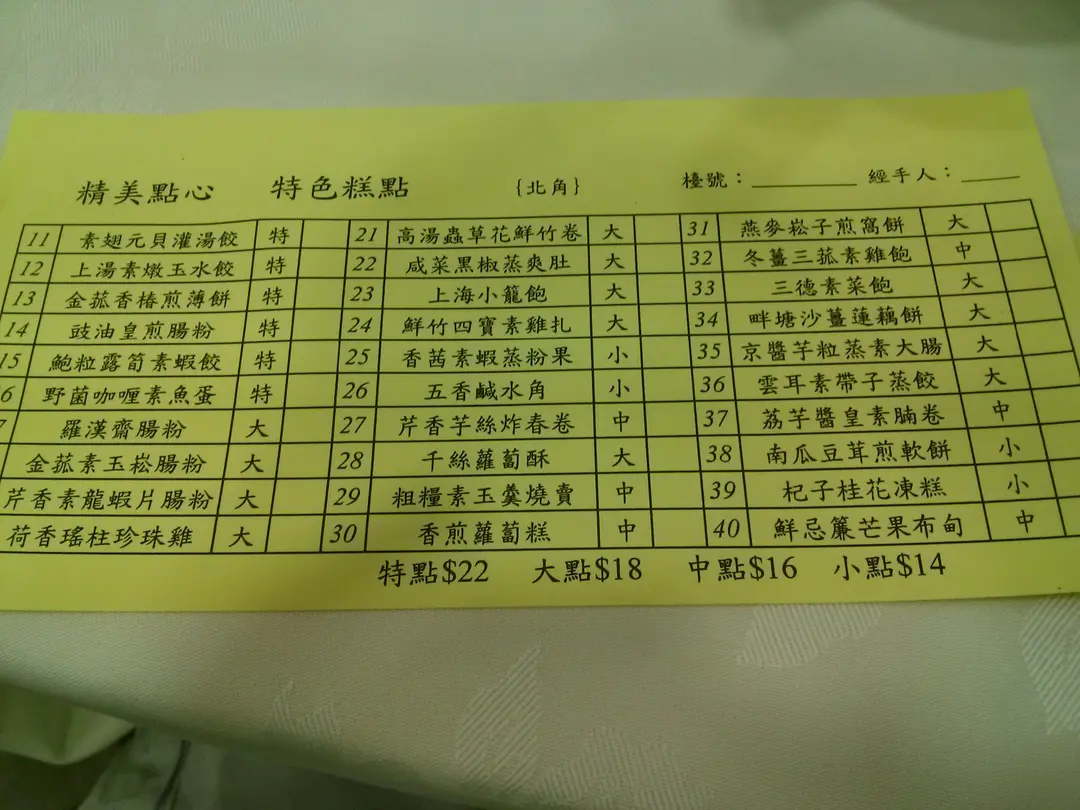 精美點心 特色糕點 {北角} 檯號：________ 經手人：_____
11 素翅元貝灌湯餃 特 21 高湯蟲草花鮮竹卷 大 31 燕麥崧子煎窩餅 大
12 上湯素燉玉水餃 特 22 咸菜黑椒蒸爽肚 大 32 冬薑三菰素雞飽 中
13 金菰香椿煎薄餅 特 23 上海小籠飽 大 33 三德素菜飽 大
14 豉油皇煎腸粉 特 24 鮮竹四寶素雞扎 大 34 畔塘沙薑蓮藕餅 大
15 鮑粒露筍素蝦餃 特 25 香茜素蝦蒸粉果 小 35 京醬芋粒蒸素大腸 大
6 野菌咖喱素魚蛋 特 26 五香鹹水角 小 36 雲耳素帶子蒸餃 大
7 羅漢齋腸粉 大 27 芹香芋絲炸春卷 中 37 荔芋醬皇素腩卷 中
金菰素玉崧腸粉 大 28 千絲蘿蔔酥 大 38 南瓜豆茸煎軟餅 小
芹香素龍蝦片腸粉 大 29 粗糧素玉羹燒賣 中 39 杞子桂花凍糕 小
荷香瑤柱珍珠雞 大 30 香煎蘿蔔糕 中 40 鮮忌簾芒果布甸 中
特點$22 大點$18 中點$16 小點$14